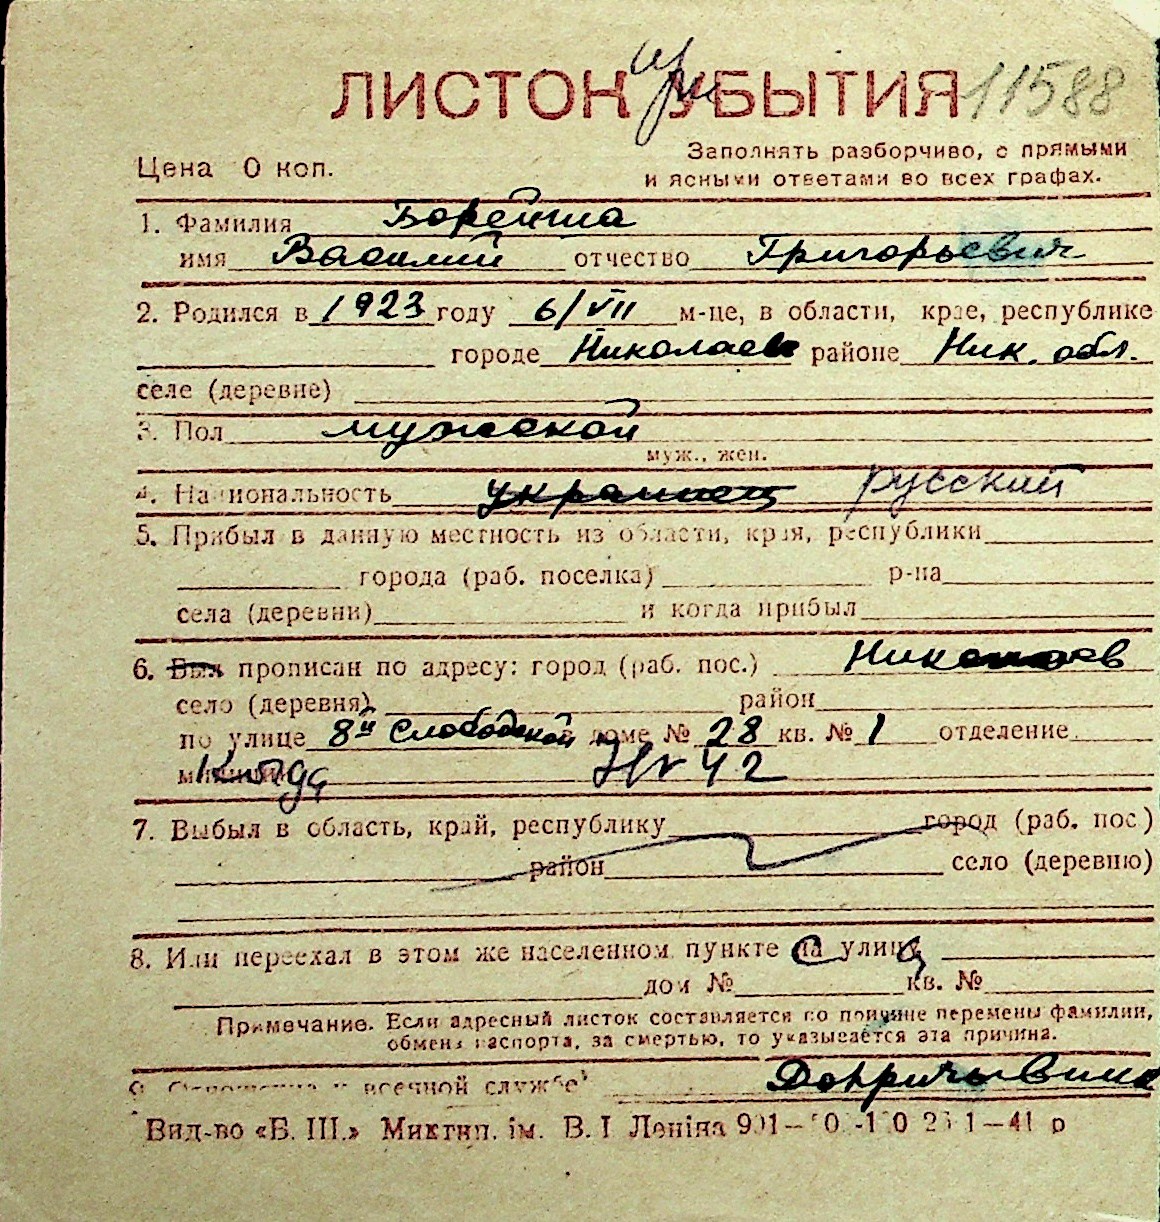 ЛИСТОК УБЫТИЯ 11588
при
Цена 0 коп.
Заполнять разборчиво, с прямыми
и ясными ответами во всех графах.
1. Фамилия Борейша
имя Василий отчество Григорьевич
2. Родился в 1923 году 6/VII м-це, в области, крае, республике
городе Николаев районе Ник. обл.
селе (деревне)
3. Пол мужской
муж., жен.
4. Национальность украинец русский
5. Прибыл в данную местность из области, края, республики
города (раб. поселка) р-на
села (деревни) и когда прибыл
6. Был прописан по адресу: город (раб. пос.) Николаев
село (деревня) район
по улице 8й Слободской в доме № 28 кв. № 1 отделение
42
7. Выбыл в область, край, республику город (раб. пос.)
район село (деревню)
8. Или переехал в этом же населенном пункте с улиц
дом № кв. №
Примечание. Если адресный листок составляется по причине перемены фамилии,
обмена паспорта, за смертью, то указывается эта причина.
9. Отношение к военной службе
Вид-во «Б. Ш.» Миктип. ім. В. І Леніна